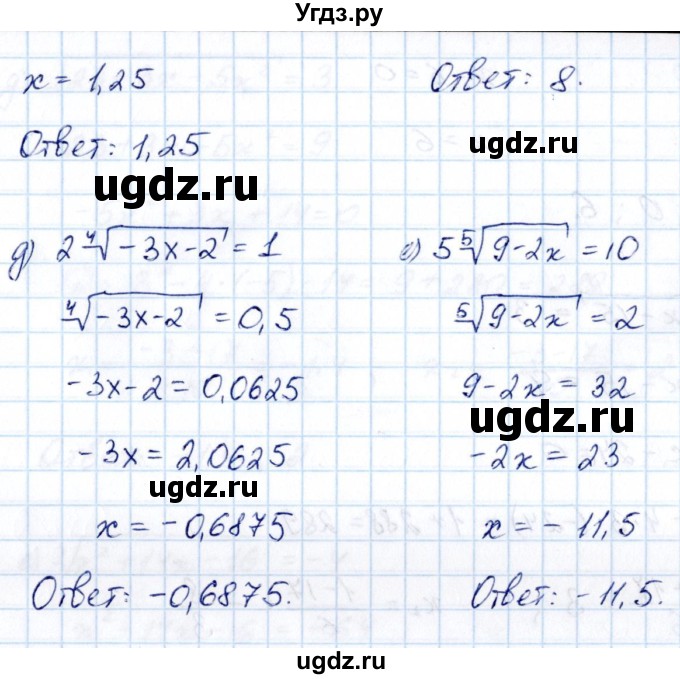 Угдз.ру
x = 1,25
Ответ: 1,25
Ответ: 8.
ugdz.ru
ugdz.ru
д) 2 ∜(-3x-2) = 1
∜(-3x-2) = 0,5
-3x-2 = 0,0625
-3x = 2,0625
ugdz.ru
x = -0,6875
Ответ: -0,6875.
ugdz.ru
е) 5 ⁵√(9-2x) = 10
⁵√(9-2x) = 2
9-2x = 32
ugdz.ru
-2x = 23
x = -11,5
Ответ: -11,5.
ugdz.ru
ugdz.ru